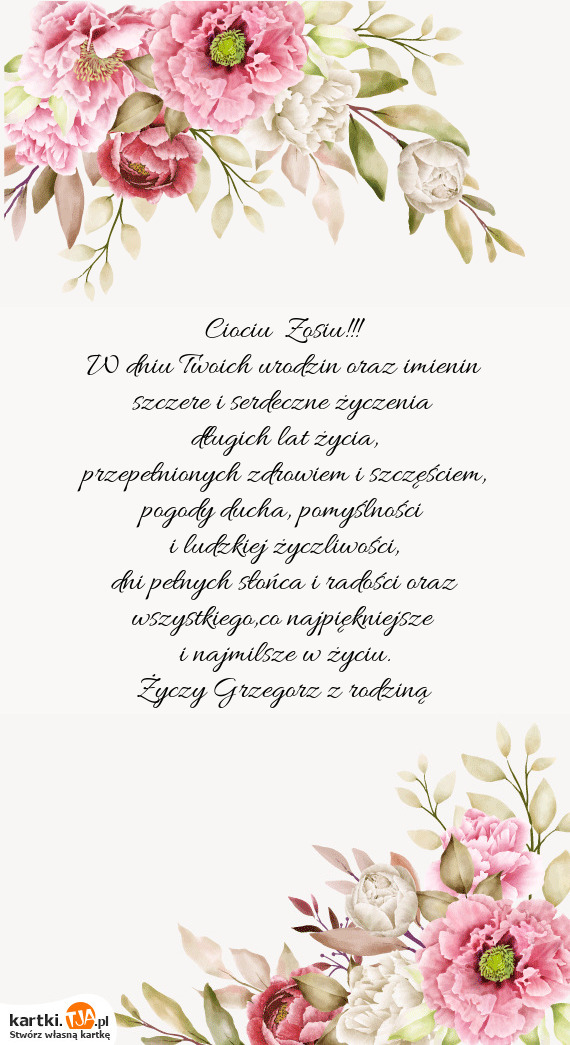 Ciociu Zosiu!!!
W dniu Twoich urodzin oraz imienin
szczere i serdeczne życzenia
długich lat życia,
przepełnionych zdrowiem i szczęściem,
pogody ducha, pomyślności
i ludzkiej życzliwości,
dni pełnych słońca i radości oraz
wszystkiego,co najpiękniejsze
i najmilsze w życiu.
Życzy Grzegorz z rodziną
kartki.TJA.pl
Stwórz własną kartkę